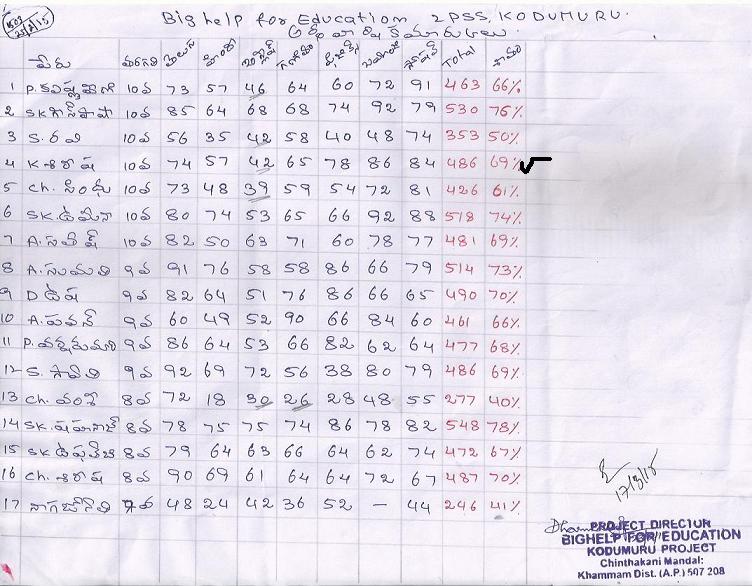 Big help for Education ZPSS, KODUMURU.
అర్ధ వార్షిక మార్కులు
పేరు తరగతి తెలుగు హిందీ ఇంగ్లీష్ గణితం సోషల్ Total శాతం
1 P. 10వ 73 57 46 64 60 72 91 463 66%
2 SK. 10వ 85 64 68 68 74 92 79 530 76%
3 S. రవి 10వ 56 35 42 58 40 48 74 353 50%
4 K శిరీష 10వ 74 57 42 65 78 86 84 486 69%
5 Ch. సింధు 10వ 73 48 39 59 54 72 81 426 61%
6 SK. 10వ 80 74 53 65 66 92 88 518 74%
7 A. సతీష్ 10వ 82 50 63 71 60 78 77 481 69%
8 A. సుమతి 9వ 91 76 58 58 86 66 79 514 73%
9 D 9వ 82 64 51 76 86 66 65 490 70%
10 A. పవన్ 9వ 60 49 52 90 66 84 60 461 66%
11 P. 9వ 86 64 53 66 82 62 64 477 68%
12 S. 9వ 92 69 72 56 38 80 79 486 69%
13 Ch. వంశీ 8వ 72 18 30 26 28 48 55 277 40%
14 SK. 8వ 78 75 75 74 86 78 82 548 78%
15 SK. 8వ 79 64 63 66 64 62 74 472 67%
16 Ch. శిరీష 8వ 90 69 61 64 64 72 67 487 70%
17 48 24 42 36 52 - 44 246 41%
PROJECT DIRECTUR
BIGHELP FOR EDUCATION
KODUMURU PROJECT
Chinthakani Mandal:
Khammam Dist. (A.P.) 507 208